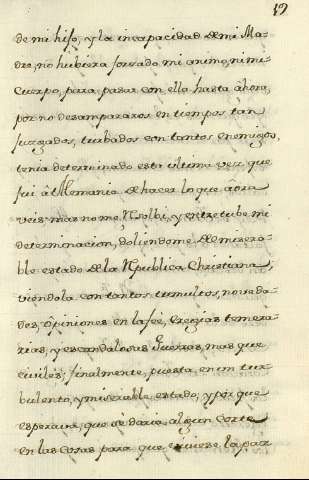 49
de mi hijo, y la incapacidad de mi Ma-
dre, no hubiera forsado mi animo, ni mi
Cuerpo, para pasar con ello hasta ahora,
por no desampararos en tiempos tan
turbados con tantos enemigos,
tenia determinado esta última vez que
fui á Alemania de hacer lo que aora
veis; mas no me Rsolbi, y entretube mi
determinacion, doliendome del misera-
ble estado de la Rpublica Christiana,
viendola con tantos tumultos, noveda-
des, opiniones en la fée, Eregias temera-
rias, y escandalosas Guerras, mas que
civiles; finalmente, puesta en un tur-
bulento, y miserable estado, y por que
esperava, que se daria algun corte
en las cosas para que tuviese la paz